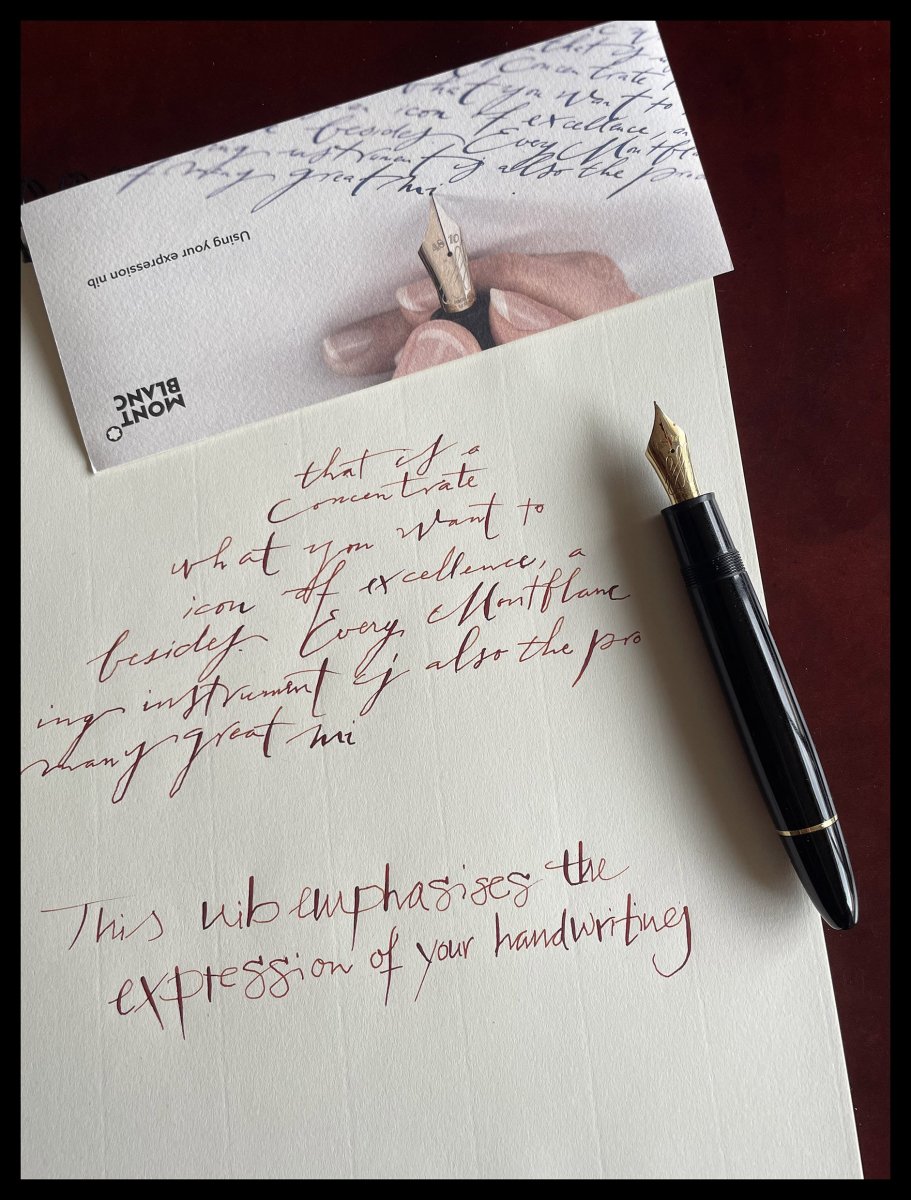 that if a
Concentrate
what you want to
an icon of excellence, an
besides. Every Montbla
ing instrument is also the pro
f many great mi
48 10
Using your expression nib
MONT
BLANC
that if a
Concentrate
what you want to
icon of excellence, a
besides. Every Montflanc
ing instrument is also the pro
many great mi
This nib emphasises the
expression of your handwriting